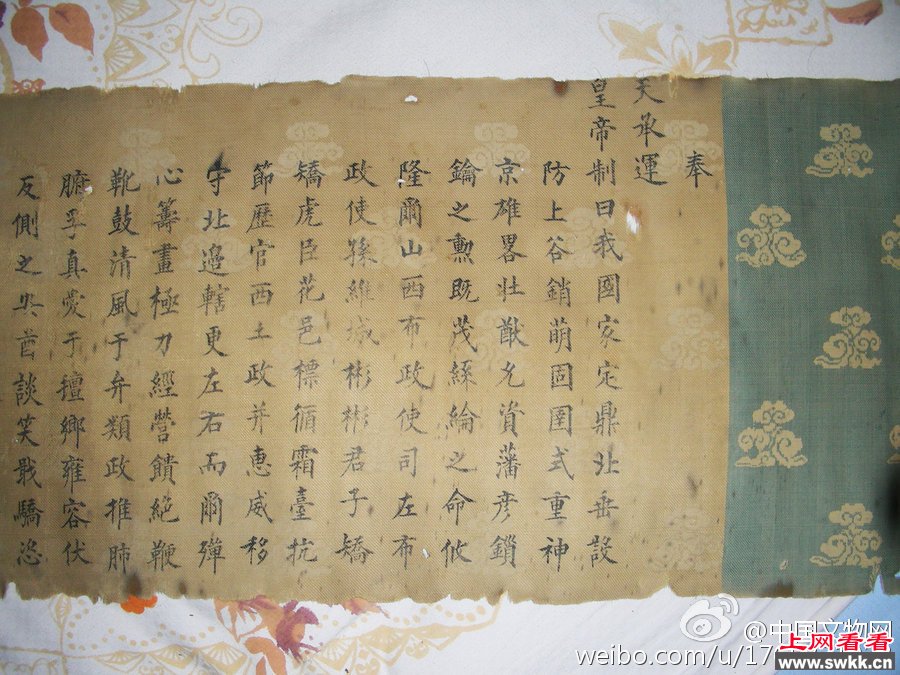 奉
天承運
皇帝制曰我國家定鼎北垂設
防上谷銷萌固圉式重神
京雄畧壯猷允資藩彦鎖
鑰之勳既茂絲綸之命攸
隆爾山西布政使司左布
政使孫維城彬彬君子矯
矯虎臣花邑標循霜臺抗
節歷官西土政并惠威移
守北邊轄更左右而爾殫
心籌畫極力經營饋絕鞭
靴鼓清風于弁類政推肺
腑孚真愛于鄉雍容伏
反側之酋談笑戢驕恣
@中国文物网
weibo.com/u/17
上网看看
www.swkk.cn